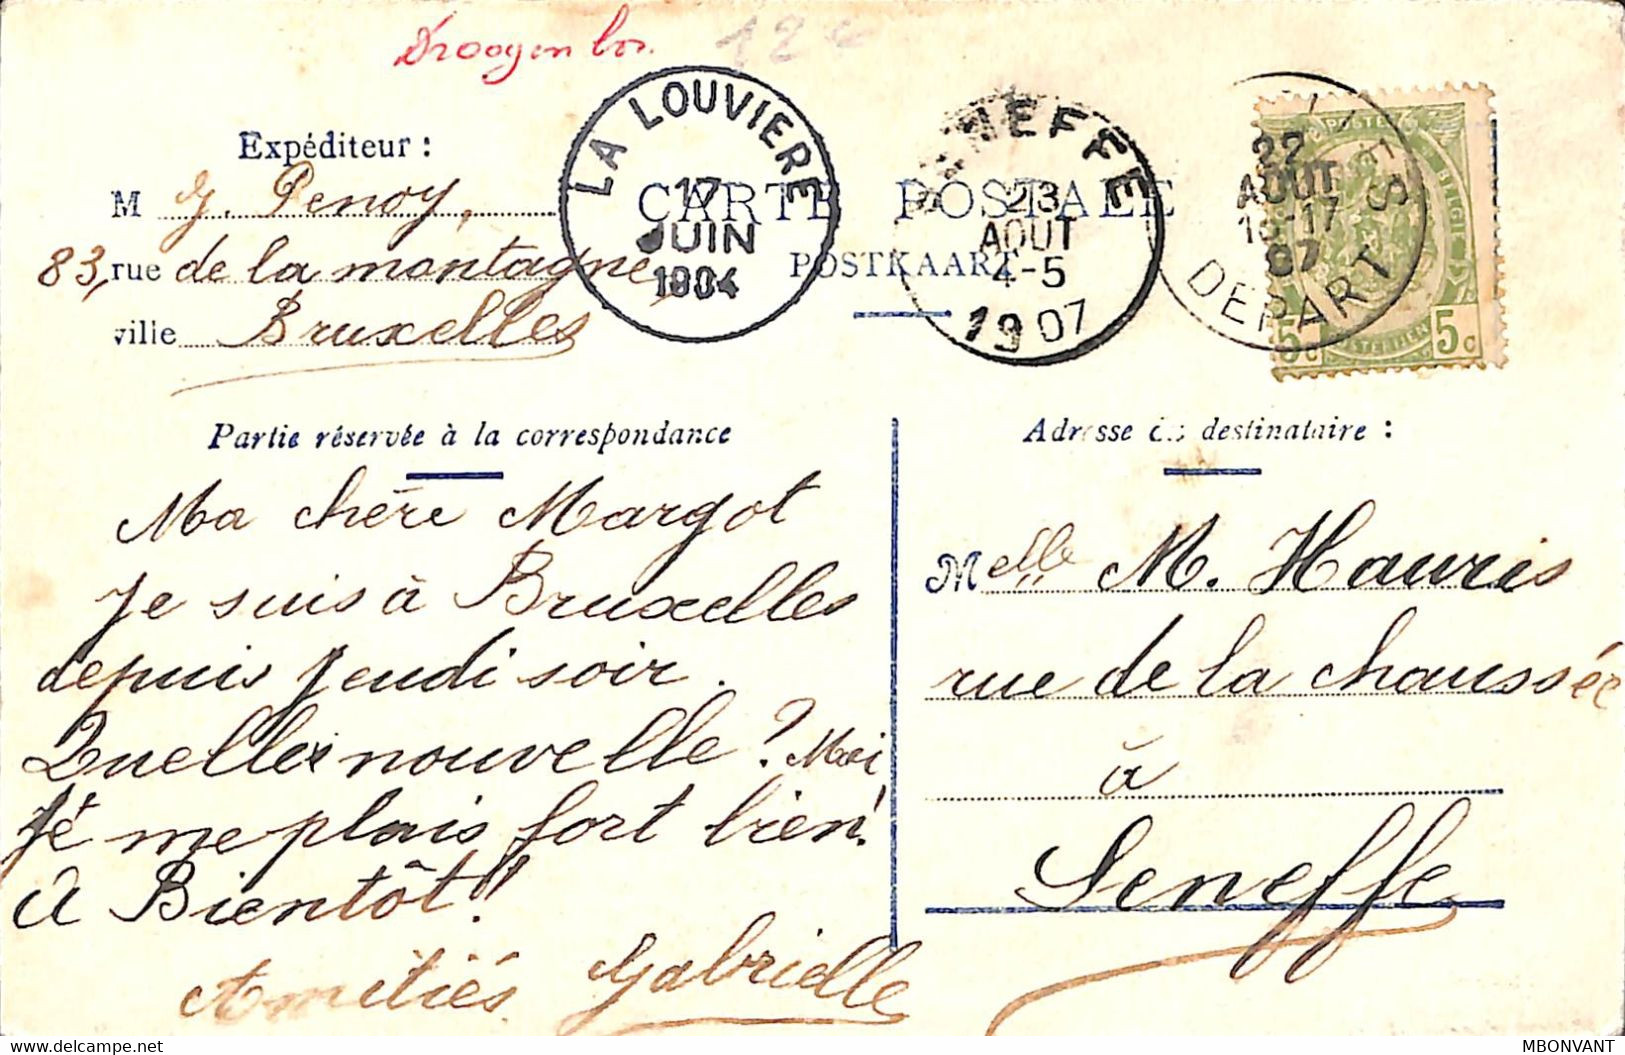 Droogenbos
12 €
Expéditeur :
M G. Penoy,
83, rue de la montagne
ville Bruxelles
LA LOUVIERE
17
JUIN
1904
CARTE POSTALE
POSTKAART
SENEFFE
23
AOUT
4-5
1907
22
AOUT
16-17
07
DEPART
POSTE
BELGIE
5c 5c
Partie réservée à la correspondance
Adresse du destinataire :
Ma chère Margot
Je suis à Bruxelles
depuis Jeudi soir.
Quelles nouvelle? Moi
Je me plais fort bien!
à Bientôt!!
Amitiés Gabrielle
Melle M. Hauris
rue de la chaussée
à
Seneffe
MBONVANT